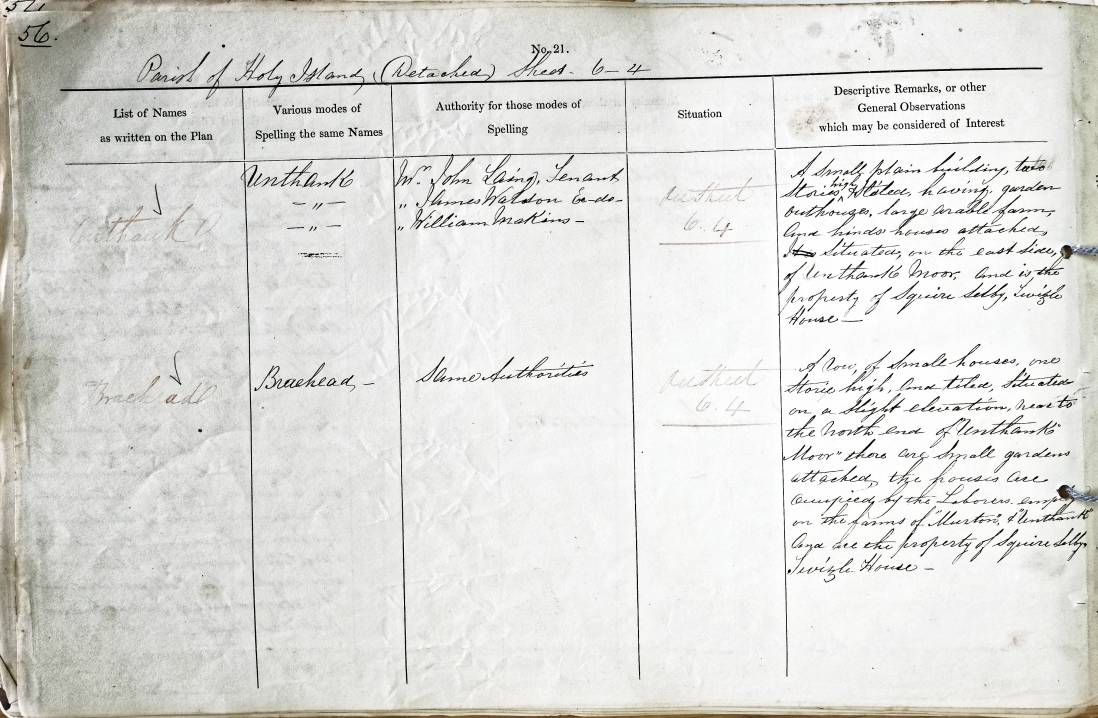 56.
No. 21.
Parish of Holy Island, (Detached) Sheet 6-4
List of Names
as written on the Plan
Various modes of
Spelling the same Names
Authority for those modes of
Spelling
Situation
Descriptive Remarks, or other
General Observations
which may be considered of Interest
Unthank
Mr. John Laing, Tenant
– „ –
„ James Watson Ex-do-
– „ –
„ William Makins –
6.4
A small plain building, two
Stories high & Slated, having, garden
Outhouses, large arable farm,
And hinds houses attached,
Situated, on the east side,
of Unthank Moor, and is the
property of Squire Selby, Twizle
House –
Braehead –
Same Authorities
6.4
A row, of small houses, one
Storie high, and tiled, Situated
on a Slight elevation, near to
the North end of "Unthank
Moor" there are small gardens
attached, the houses are
occupied by the Laborers
on the farms of "Murton", & "Unthank"
And are the property of Squire Selby,
Twizle House –